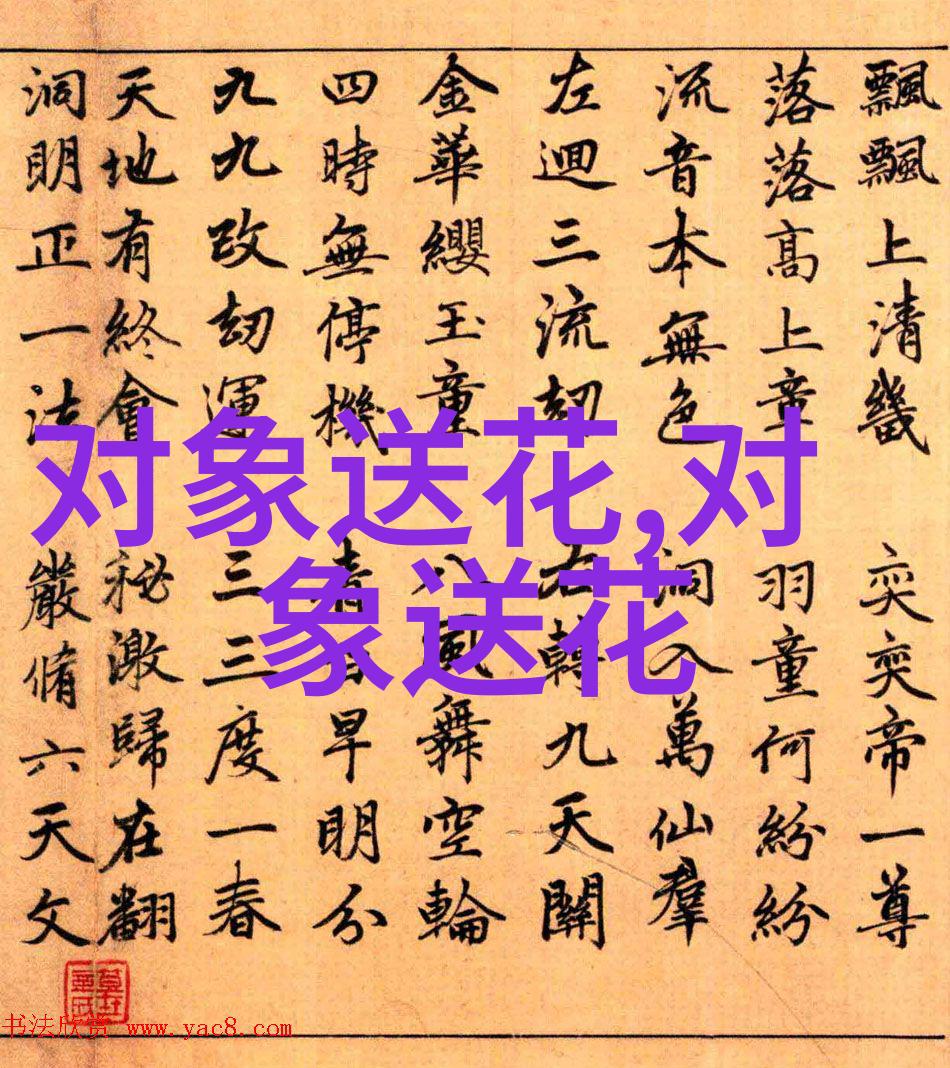 飄飄上清畿 奕奕帝一尊
落落高上章 羽童何紛紛
流音本無色 洞入萬仙羣
左迴三流劫 右轉九天關
金華纓玉童 八風舞空輪
四時無停機 早明分
九九改劫運 三三度一春
天地有終會 秘激歸在翻
洞明正一法 嚴脩六天文
对象送花,对
象送花
书法欣赏 www.yac8.com